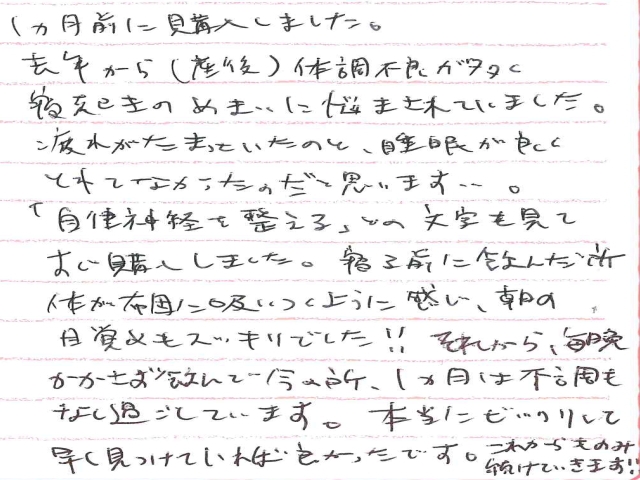 1ヵ月前に購入しました。
去年から（産後）体調不良が多く
寝起きのめまいに悩まされていました。
疲れがたまっていたのと、睡眠が良く
とれてなかったのだと思います…。
「自律神経を整える」との文字を見て
すぐ購入しました。寝る前に飲んだ所
体が布団に吸いつくように感じ、朝の
目覚めもスッキリでした!! それから、毎晩
かかさず飲んで今の所、1ヵ月は不調も
なし過ごしています。本当にビックリして
早く見つけていれば良かったです。これからものみ
続けていきます!!